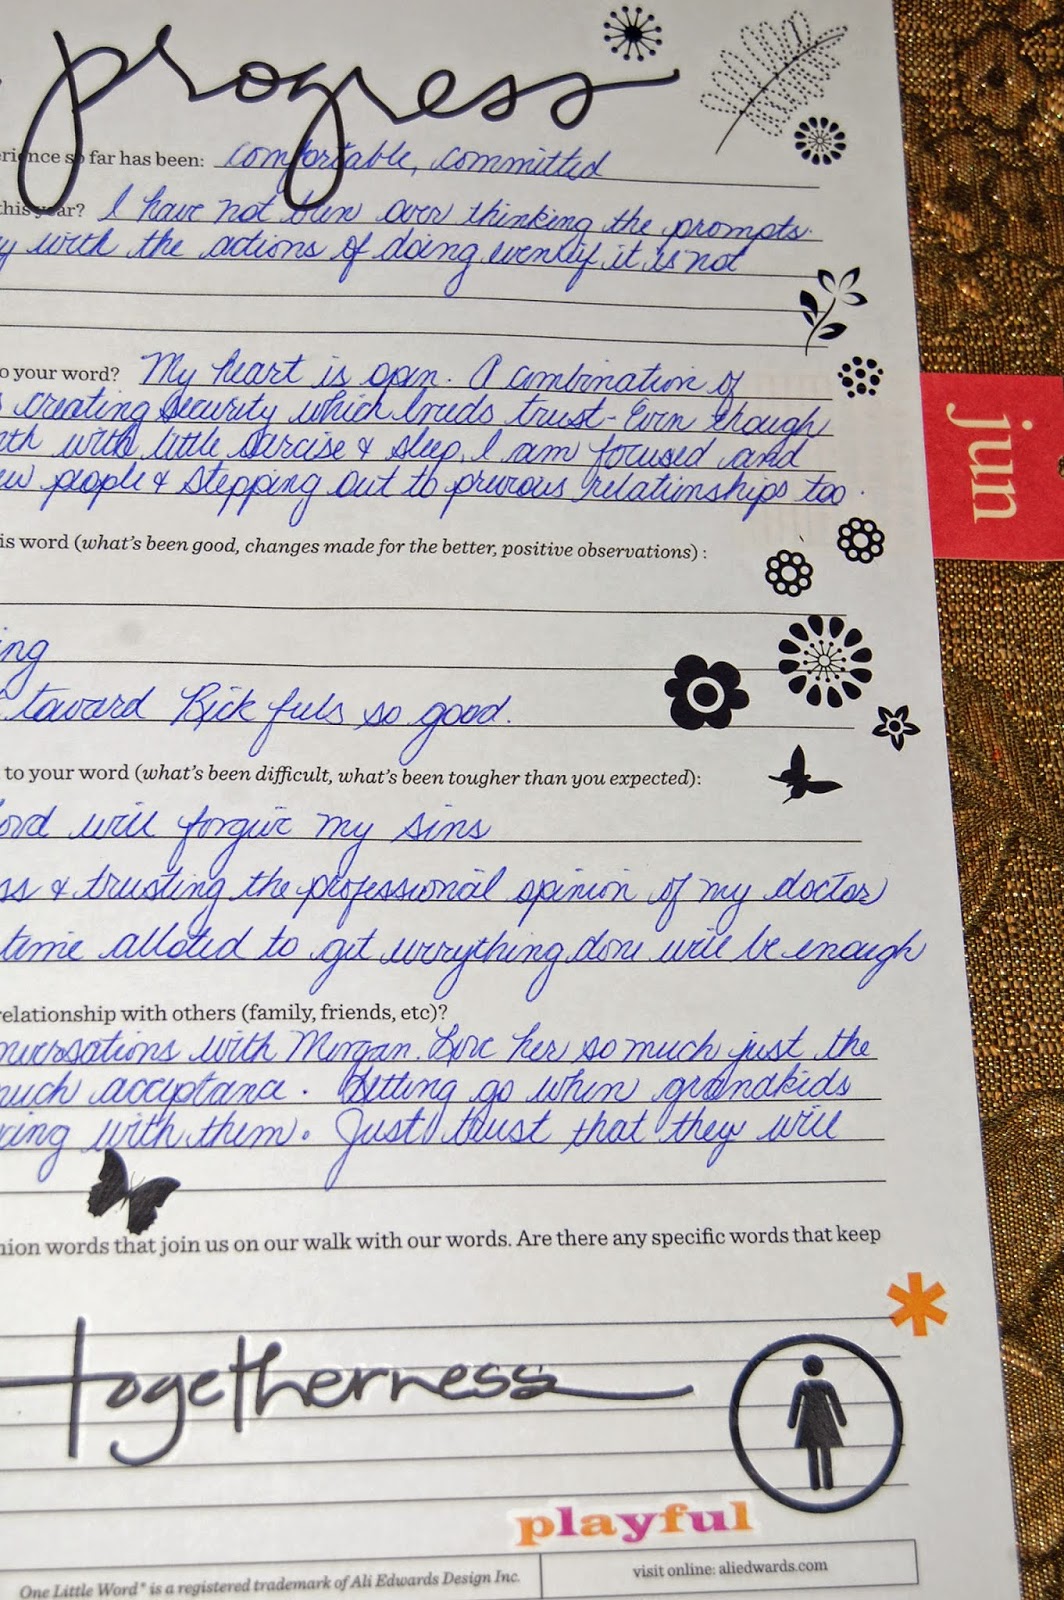 progress
erience so far has been: comfortable, committed
this year? I have not been over thinking the prompts.
y with the actions of doing even if it is not
o your word? My heart is open. A combination of
s creating security which breeds trust - Even though
th with little exercise & sleep, I am focused and
ew people & stepping out to previous relationships too.
jun
is word (what's been good, changes made for the better, positive observations) :
ing
toward Rick feels so good.
to your word (what's been difficult, what's been tougher than you expected):
ord will forgive my sins
ss & trusting the professional opinion of my doctor
time alloted to get everything done will be enough
relationship with others (family, friends, etc)?
nversations with Morgan. Love her so much just the
much acceptance. Letting go when grandkids
ring with them. Just trust that they will
nion words that join us on our walk with our words. Are there any specific words that keep
togetherness
playful
One Little Word® is a registered trademark of Ali Edwards Design Inc.
visit online: aliedwards.com